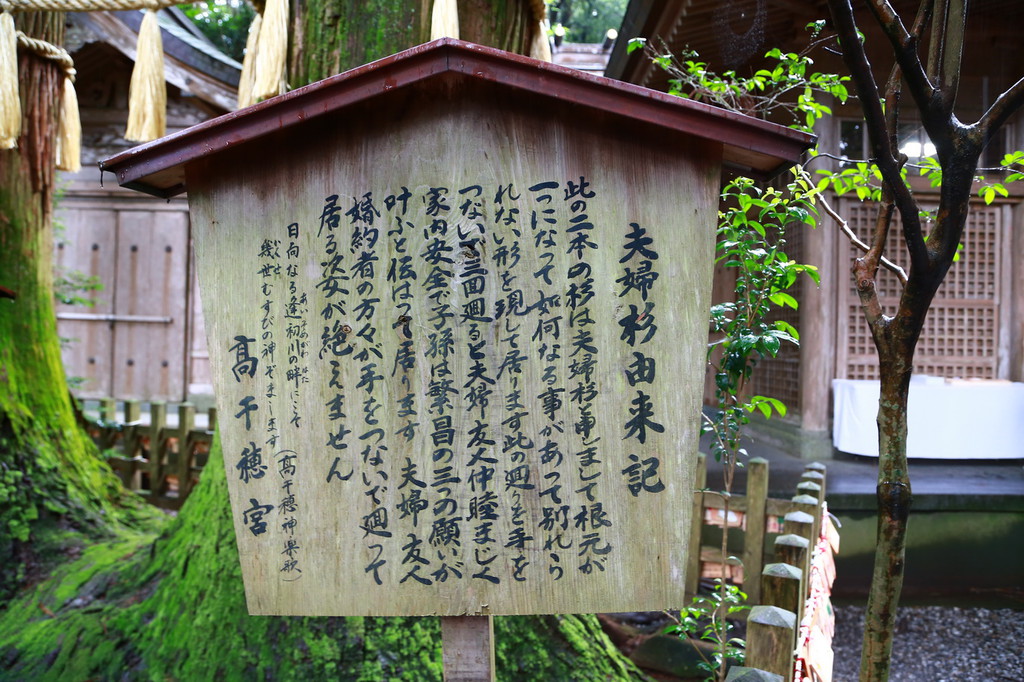 夫婦杉由来記
此の二本の杉は夫婦杉と申しまして根元が
一つになって如何なる事があって別れら
れない形を現して居ります此の廻りを手を
つないで三回廻ると夫婦友人仲睦まじく
家内安全で子孫は繁昌の三つの願いが
叶ふと伝はって居ります 夫婦友人
婚約者の方々が手をつないで廻って
居る姿が絶えません
日向なる逢初川の畔にこそ
あいそめがわ はた
幾世むすびの神ぞまします(髙千穂神楽歌)
いくよ
髙千穂宮